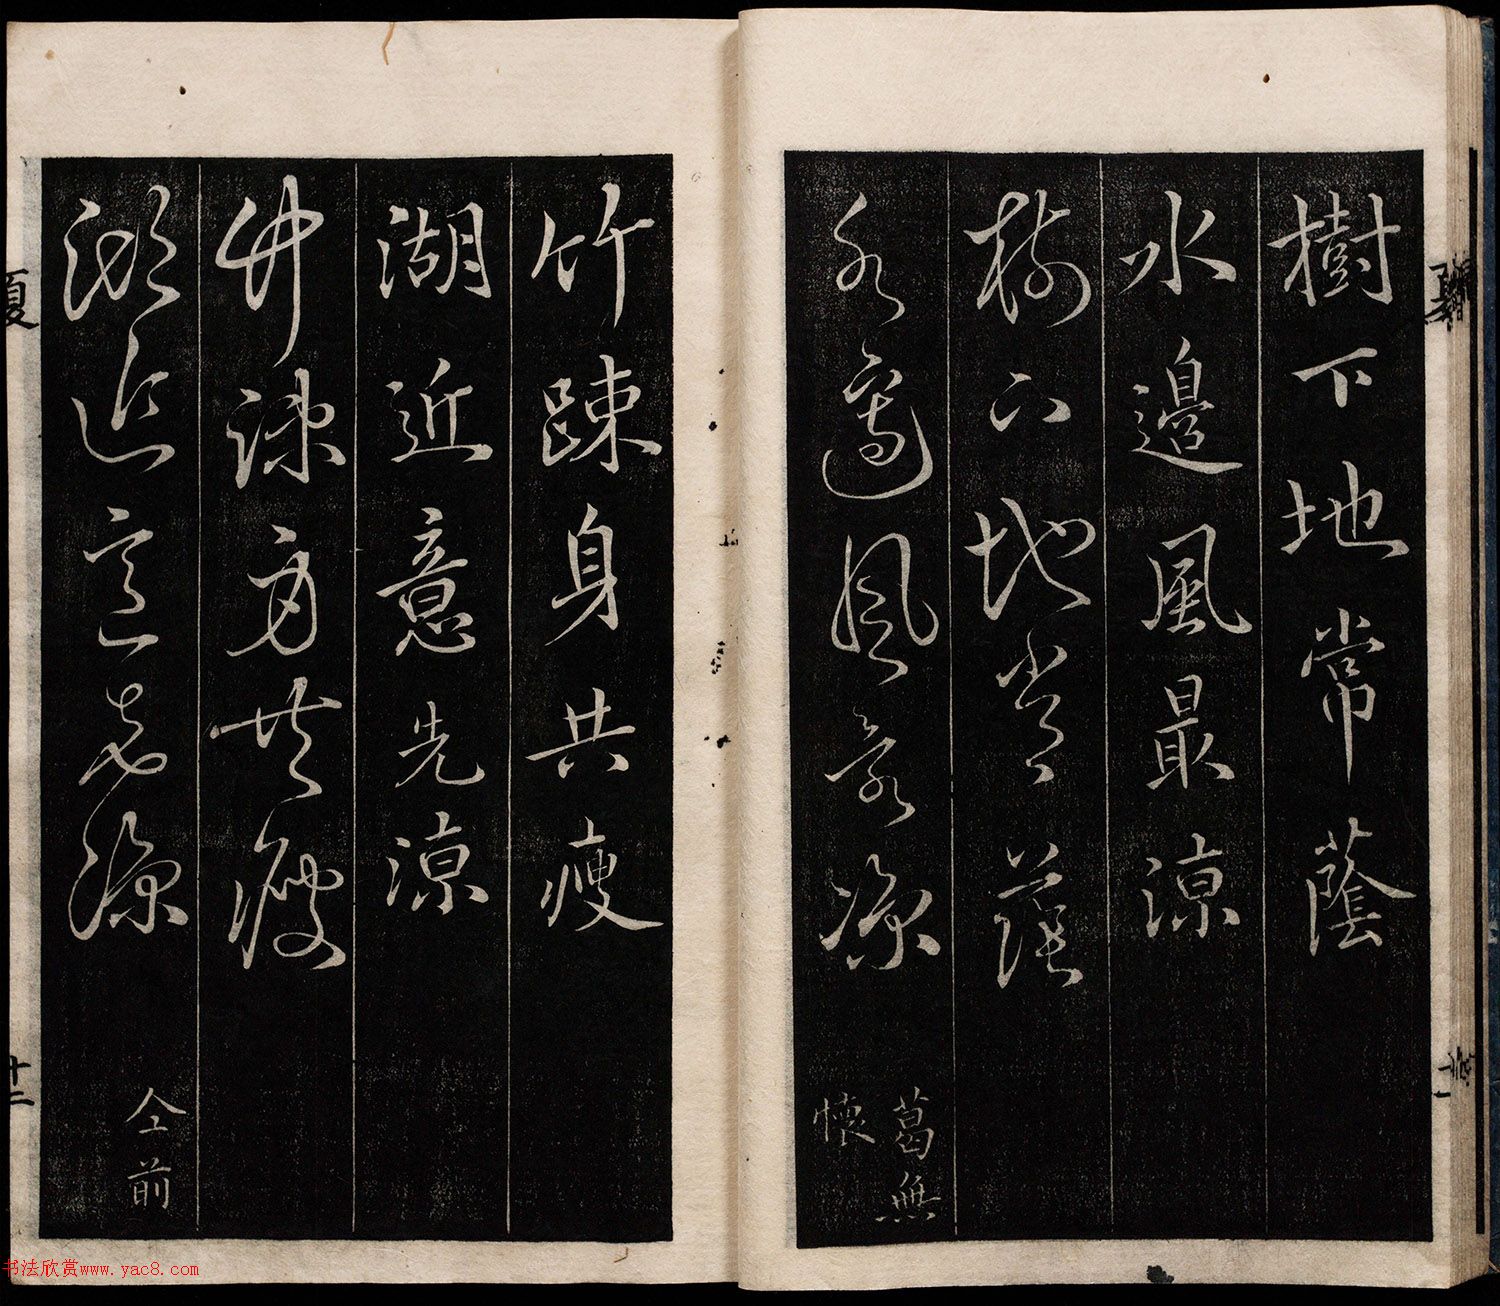 樹下地常蔭
水邊風最涼
樹下地常蔭
水邊風最涼
葛無
懷
竹踈身共瘦
湖近意先涼
竹踈身共瘦
湖近意先涼
仝前
夏
十二
书法欣赏www.yac8.com